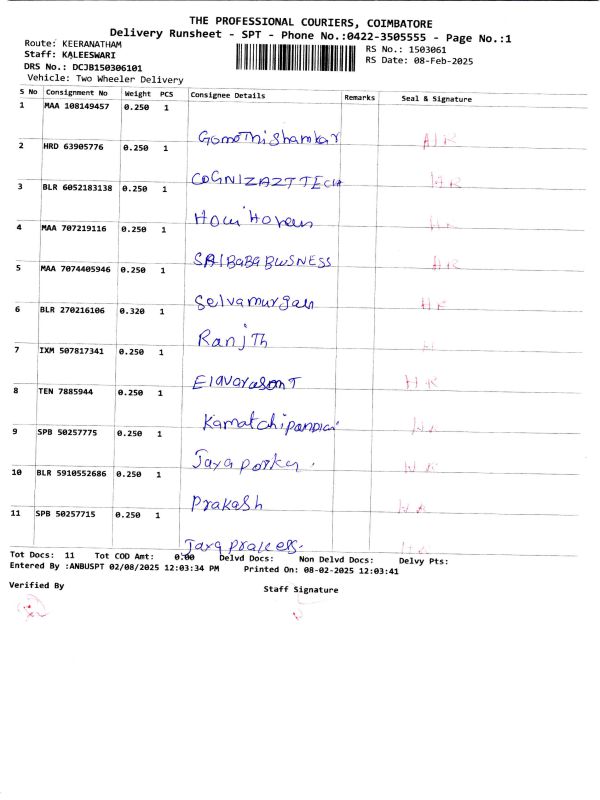 THE PROFESSIONAL COURIERS, COIMBATORE
Delivery Runsheet - SPT - Phone No.:0422-3505555 - Page No.:1
Route: KEERANATHAM RS No.: 1503061
Staff: KALEESWARI RS Date: 08-Feb-2025
DRS No.: DCJB150306101
Vehicle: Two Wheeler Delivery
S No Consignment No Weight PCS Consignee Details Remarks Seal & Signature
1 MAA 108149457 0.250 1
Gomothishamkar
2 HRD 63905776 0.250 1
COGNIZAZT TECH
3 BLR 6052183138 0.250 1
4 MAA 707219116 0.250 1
SAIBABA BUSNESS
5 MAA 7074405946 0.250 1
Selvamurgan
6 BLR 270216106 0.320 1
Ranjth
7 IXM 507817341 0.250 1
HR
8 TEN 7885944 0.250 1
9 SPB 50257775 0.250 1
10 BLR 5910552686 0.250 1
Prakash
11 SPB 50257715 0.250 1
Tot Docs: 11 Tot COD Amt: 0.00 Delvd Docs: Non Delvd Docs: Delvy Pts:
Entered By :ANBUSPT 02/08/2025 12:03:34 PM Printed On: 08-02-2025 12:03:41
Verified By
Staff Signature